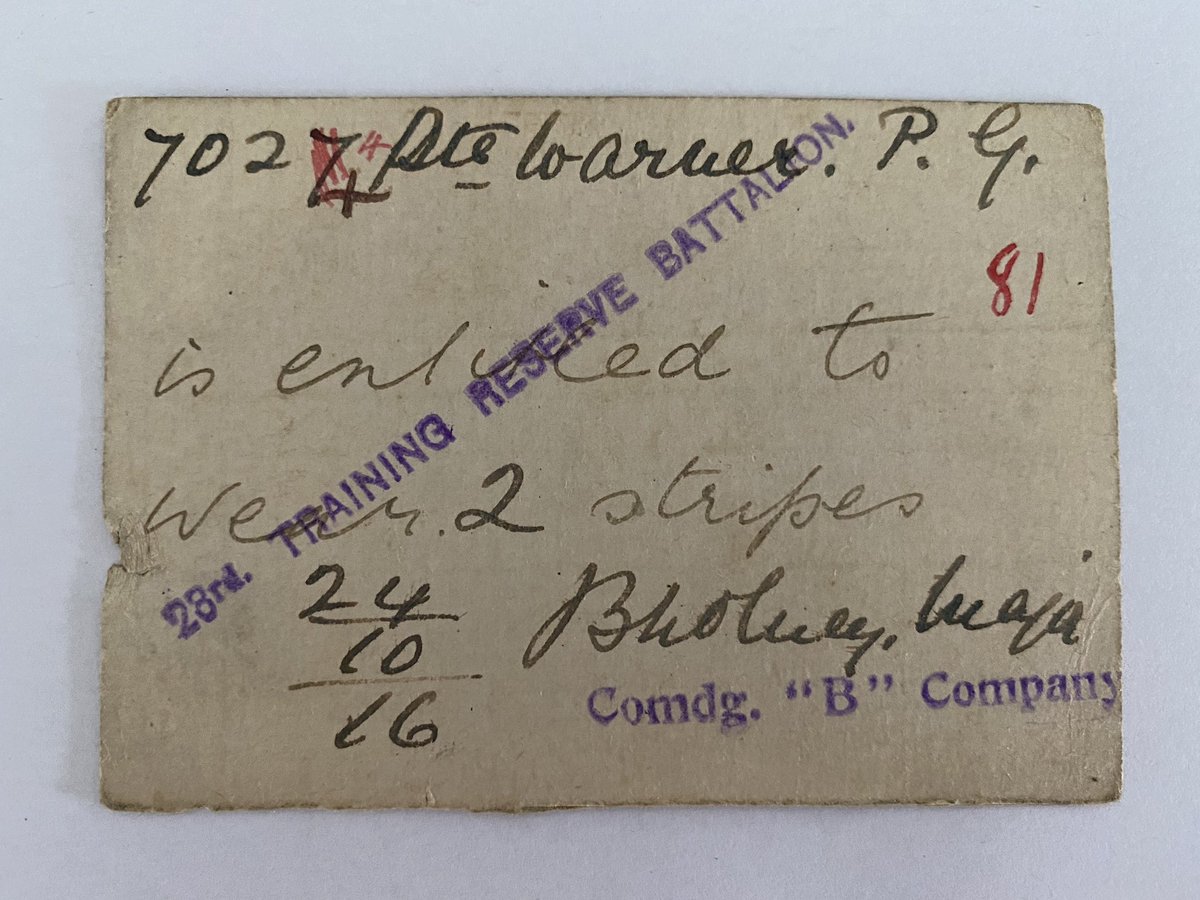 7027 4 Pte Warner. P. G.
4
81
is entitled to
wear. 2 stripes
23rd. TRAINING RESERVE BATTALION.
24
10
16
Major
Comdg. "B" Company